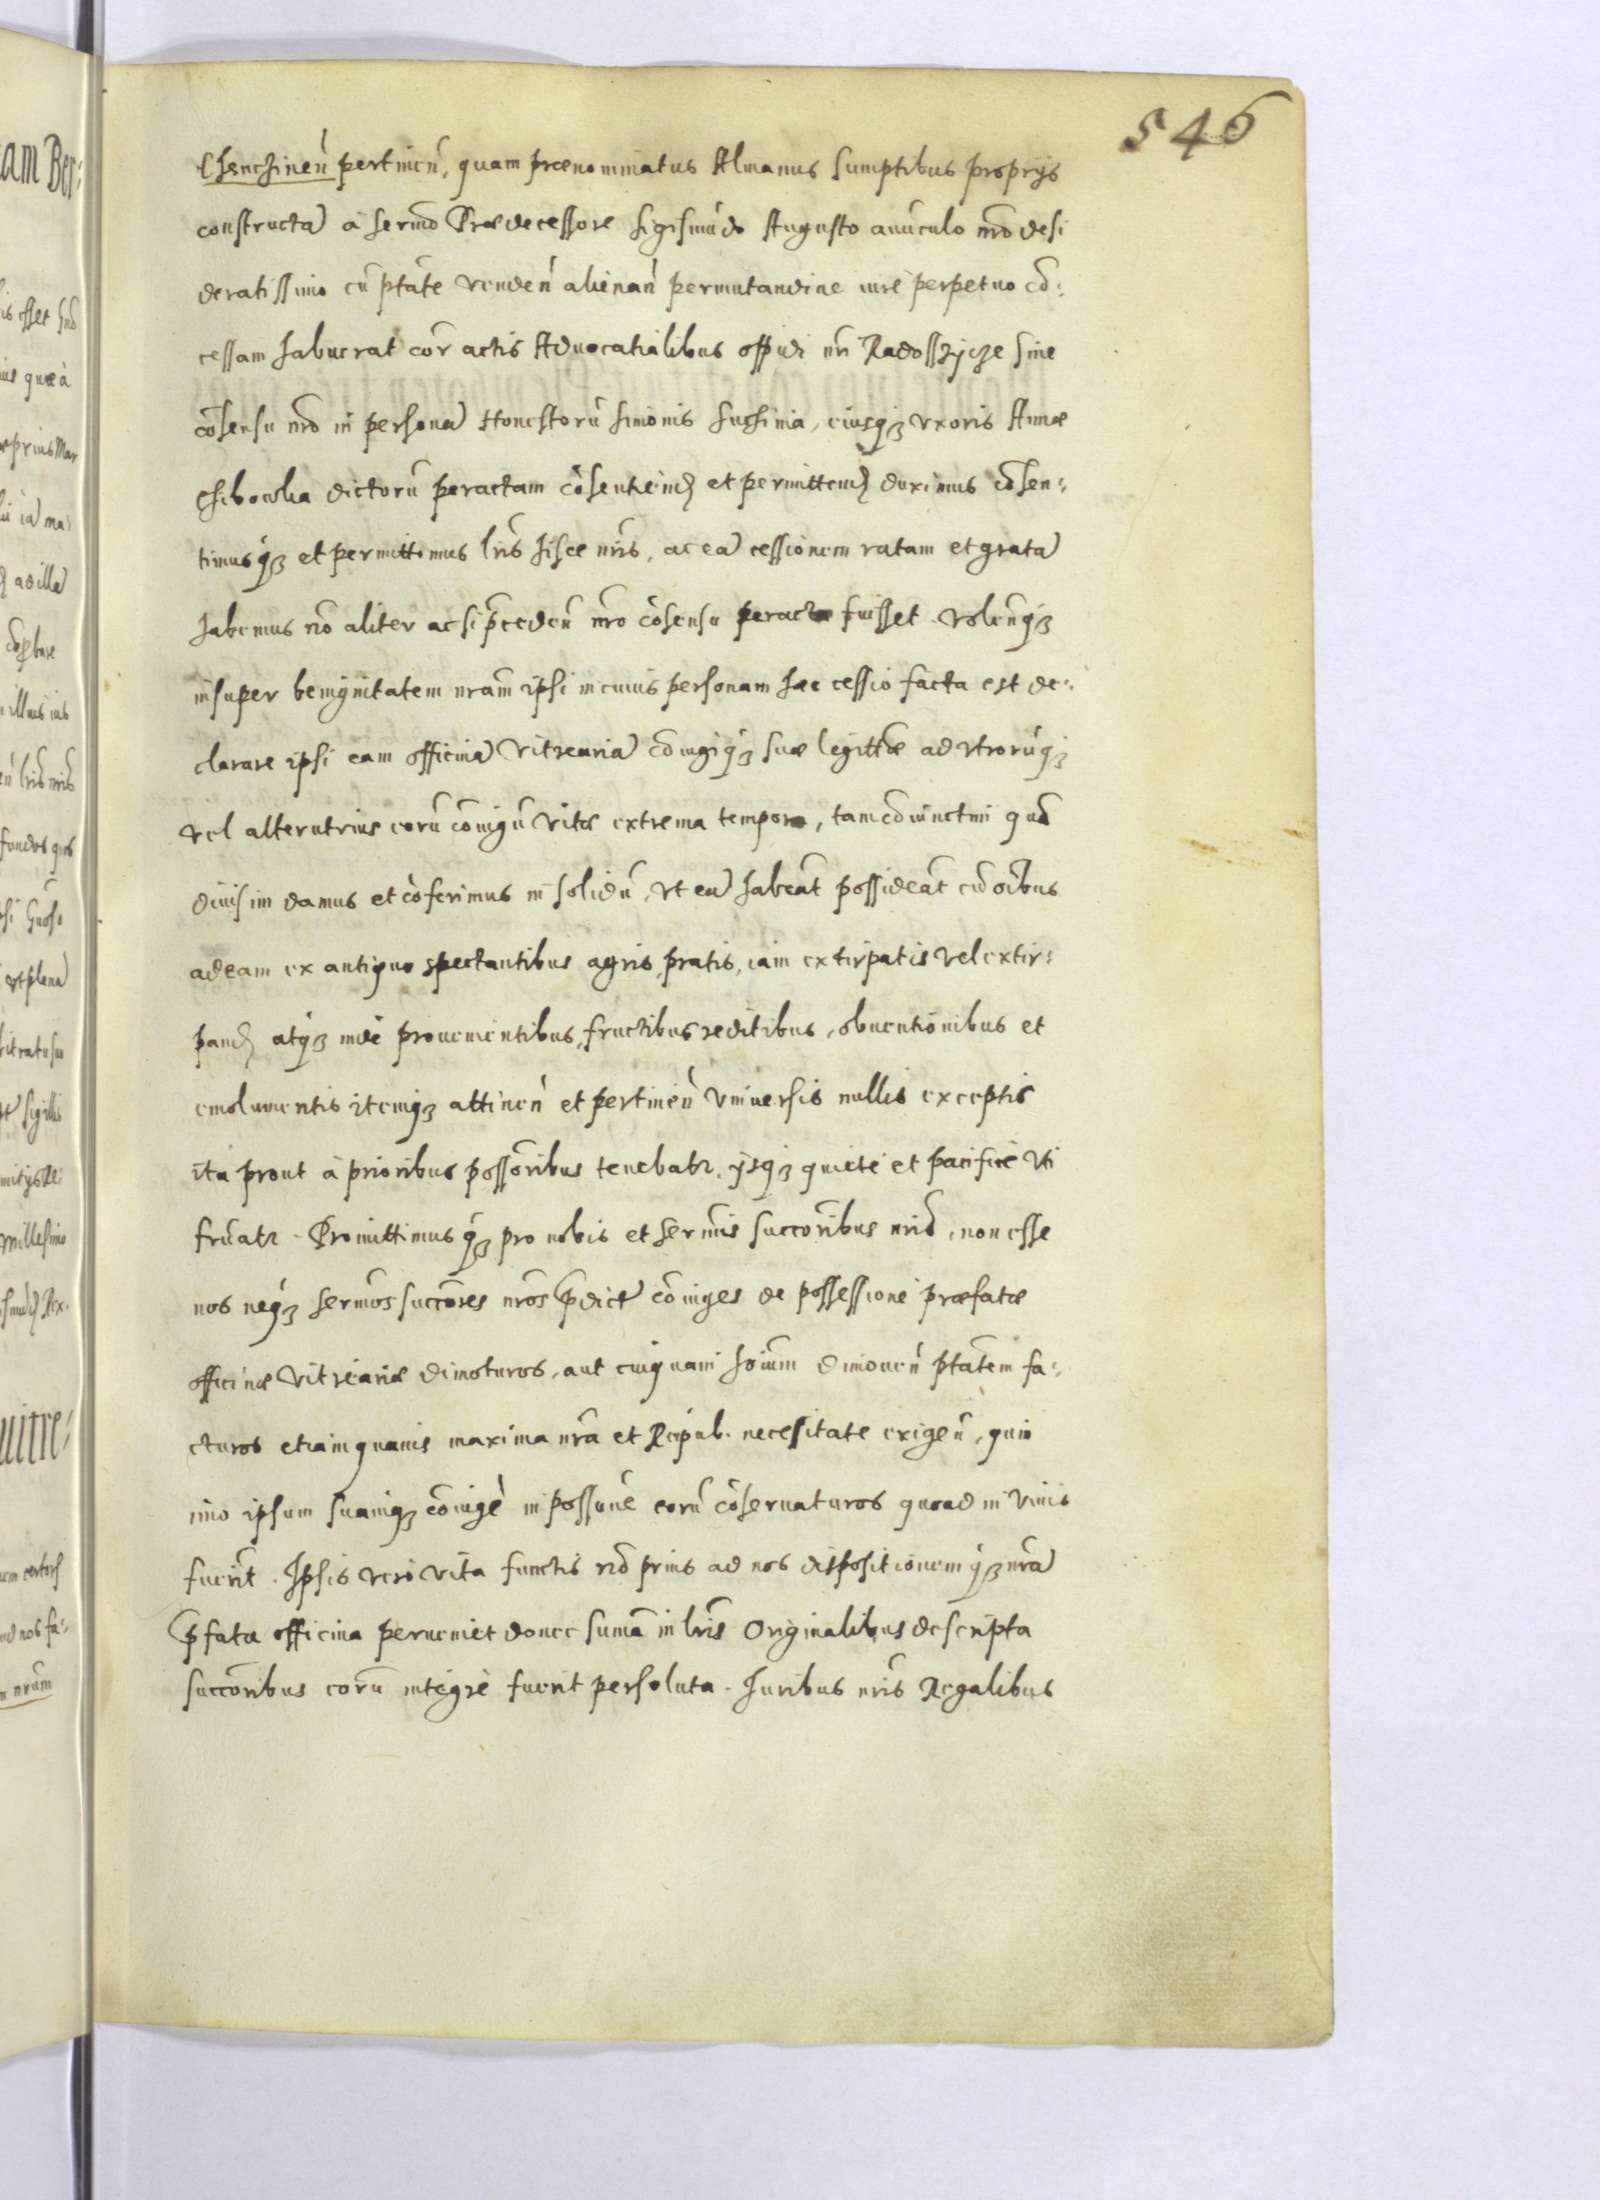 546
Chencinen̄ pertinen̄, quam prænominatus Almanus sumptibus proprijs
constructā à sermo Prædecessore Sigismūdo Augusto auūculo nr̄o desi
deratissimo cū ptāte venden̄ alienan̄ permutandiue iure perpetuo cō:
cessam habuerat cor̄ actis Aduocatialibus oppidi nr̄i Radosszycze sine
cōsensu nr̄o in personā Honestorū Simonis Suchinia, eiusq; vxoris Annæ
Chibowha dictorū peractam cōsentiend et permittend duximus cōsen:
timusq; et permittimus lrīs hisce nrīs, ac eā cessionem ratam et gratā
habemus nō aliter ac si p̄ceden̄ nr̄o cōsensu peracta fuisset. volen̄q;
insuper benignitatem nrām ipsi in cuius personam hæc cessio facta est de:
clarare ipsi eam officinā vitreariā cōiugiq; suæ legittæ ad vtrorūq;
vel alterutrius eorū cōiugū vitæ extrema tempora, tam cōiunctim quā
diuisim damus et cōferimus in solidū, vt eā habeāt possideāt cū oībus
ad eam ex antiquo spectantibus agris, pratis, iam extirpatis vel extir:
pand atq; inde prouenientibus, fructibus reditibus, obuentionibus et
emolumentis itemq; attinen̄ et pertinen̄ vniuersis nullis exceptis
ita prout à prioribus possoribus tenebatr. ijsq; quietè et pacificè vti
fruatr. Promittimusq; pro nobis et sermis succoribus nrīs, non esse
nos neq; sermos succores nrōs p̄dict cōiuges de possessione præfatæ
officinæ vitreariæ dimoturos, aut cuiquam hoīum dimouen̄ ptātem fa:
cturos etiam quauis maxima nrā et Reipub. necessitate exigen̄, quin
imo ipsum suamq; cōiugē in possone eorū cōseruaturos quoad in viuis
fuerīt. Ipsis vero vita functis nō prius ad nos dispositionemq; nrā
p̄fata officina perueniet donec sumā in lrīs Originalibus descripta
succoribus eorū integrè fuerit persoluta. Iuribus nrīs Regalibus